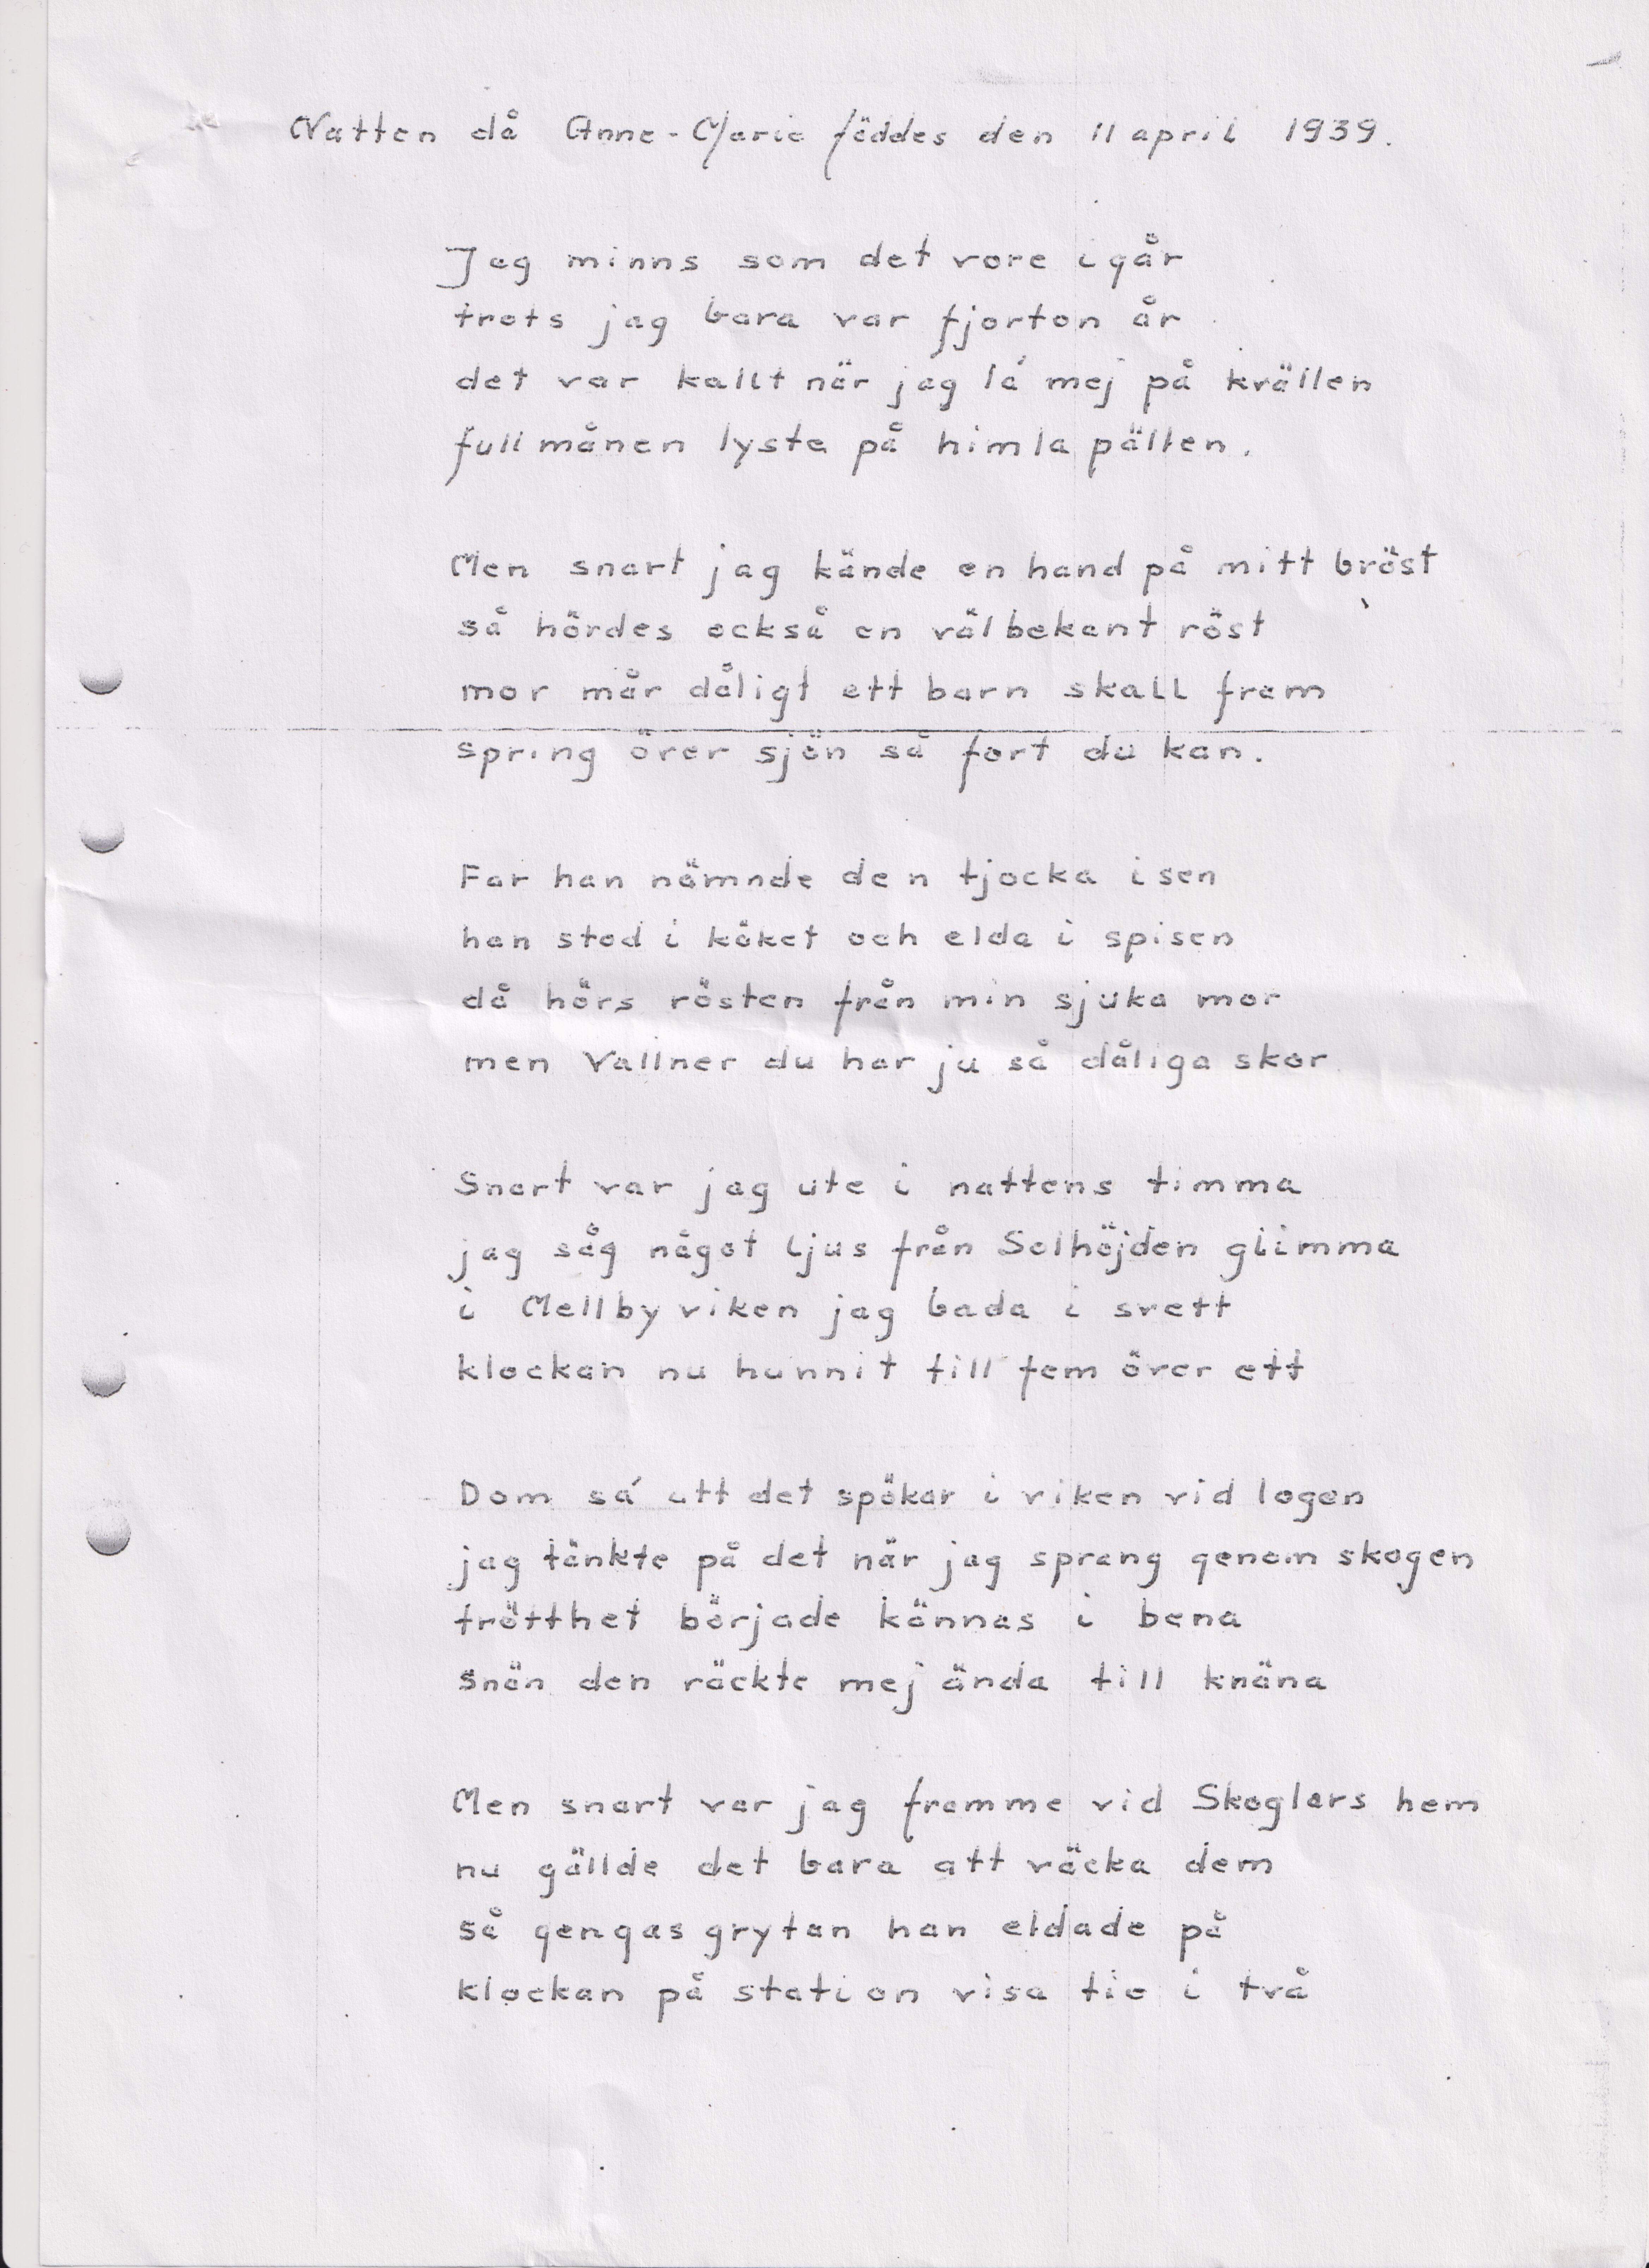 Natten då Anne-Marie föddes den 11 april 1939.
Jag minns som det vore igår
trots jag bara var fjorton år
det var kallt när jag lá mej på kvällen
fullmånen lyste på himla pällen.
Men snart jag kände en hand på mitt bröst
så hördes också en välbekant röst
mor mår dåligt ett barn skall fram
spring över sjön så fort du kan.
Far han nämnde den tjocka isen
han stod i köket och elda i spisen
då hörs rösten från min sjuka mor
men Vallner du har ju så dåliga skor
Snart var jag ute i nattens timma
jag såg något ljus från Solhöjden glimma
i Mellbyviken jag bada i svett
klockan nu hunnit till fem över ett
Dom sá att det spökar i viken vid logen
jag tänkte på det när jag sprang genom skogen
trötthet började kännas i bena
snön den räckte mej ända till knäna
Men snart var jag framme vid Skoglars hem
nu gällde det bara att väcka dem
så gengasgrytan han eldade på
klockan på station visa tio i två